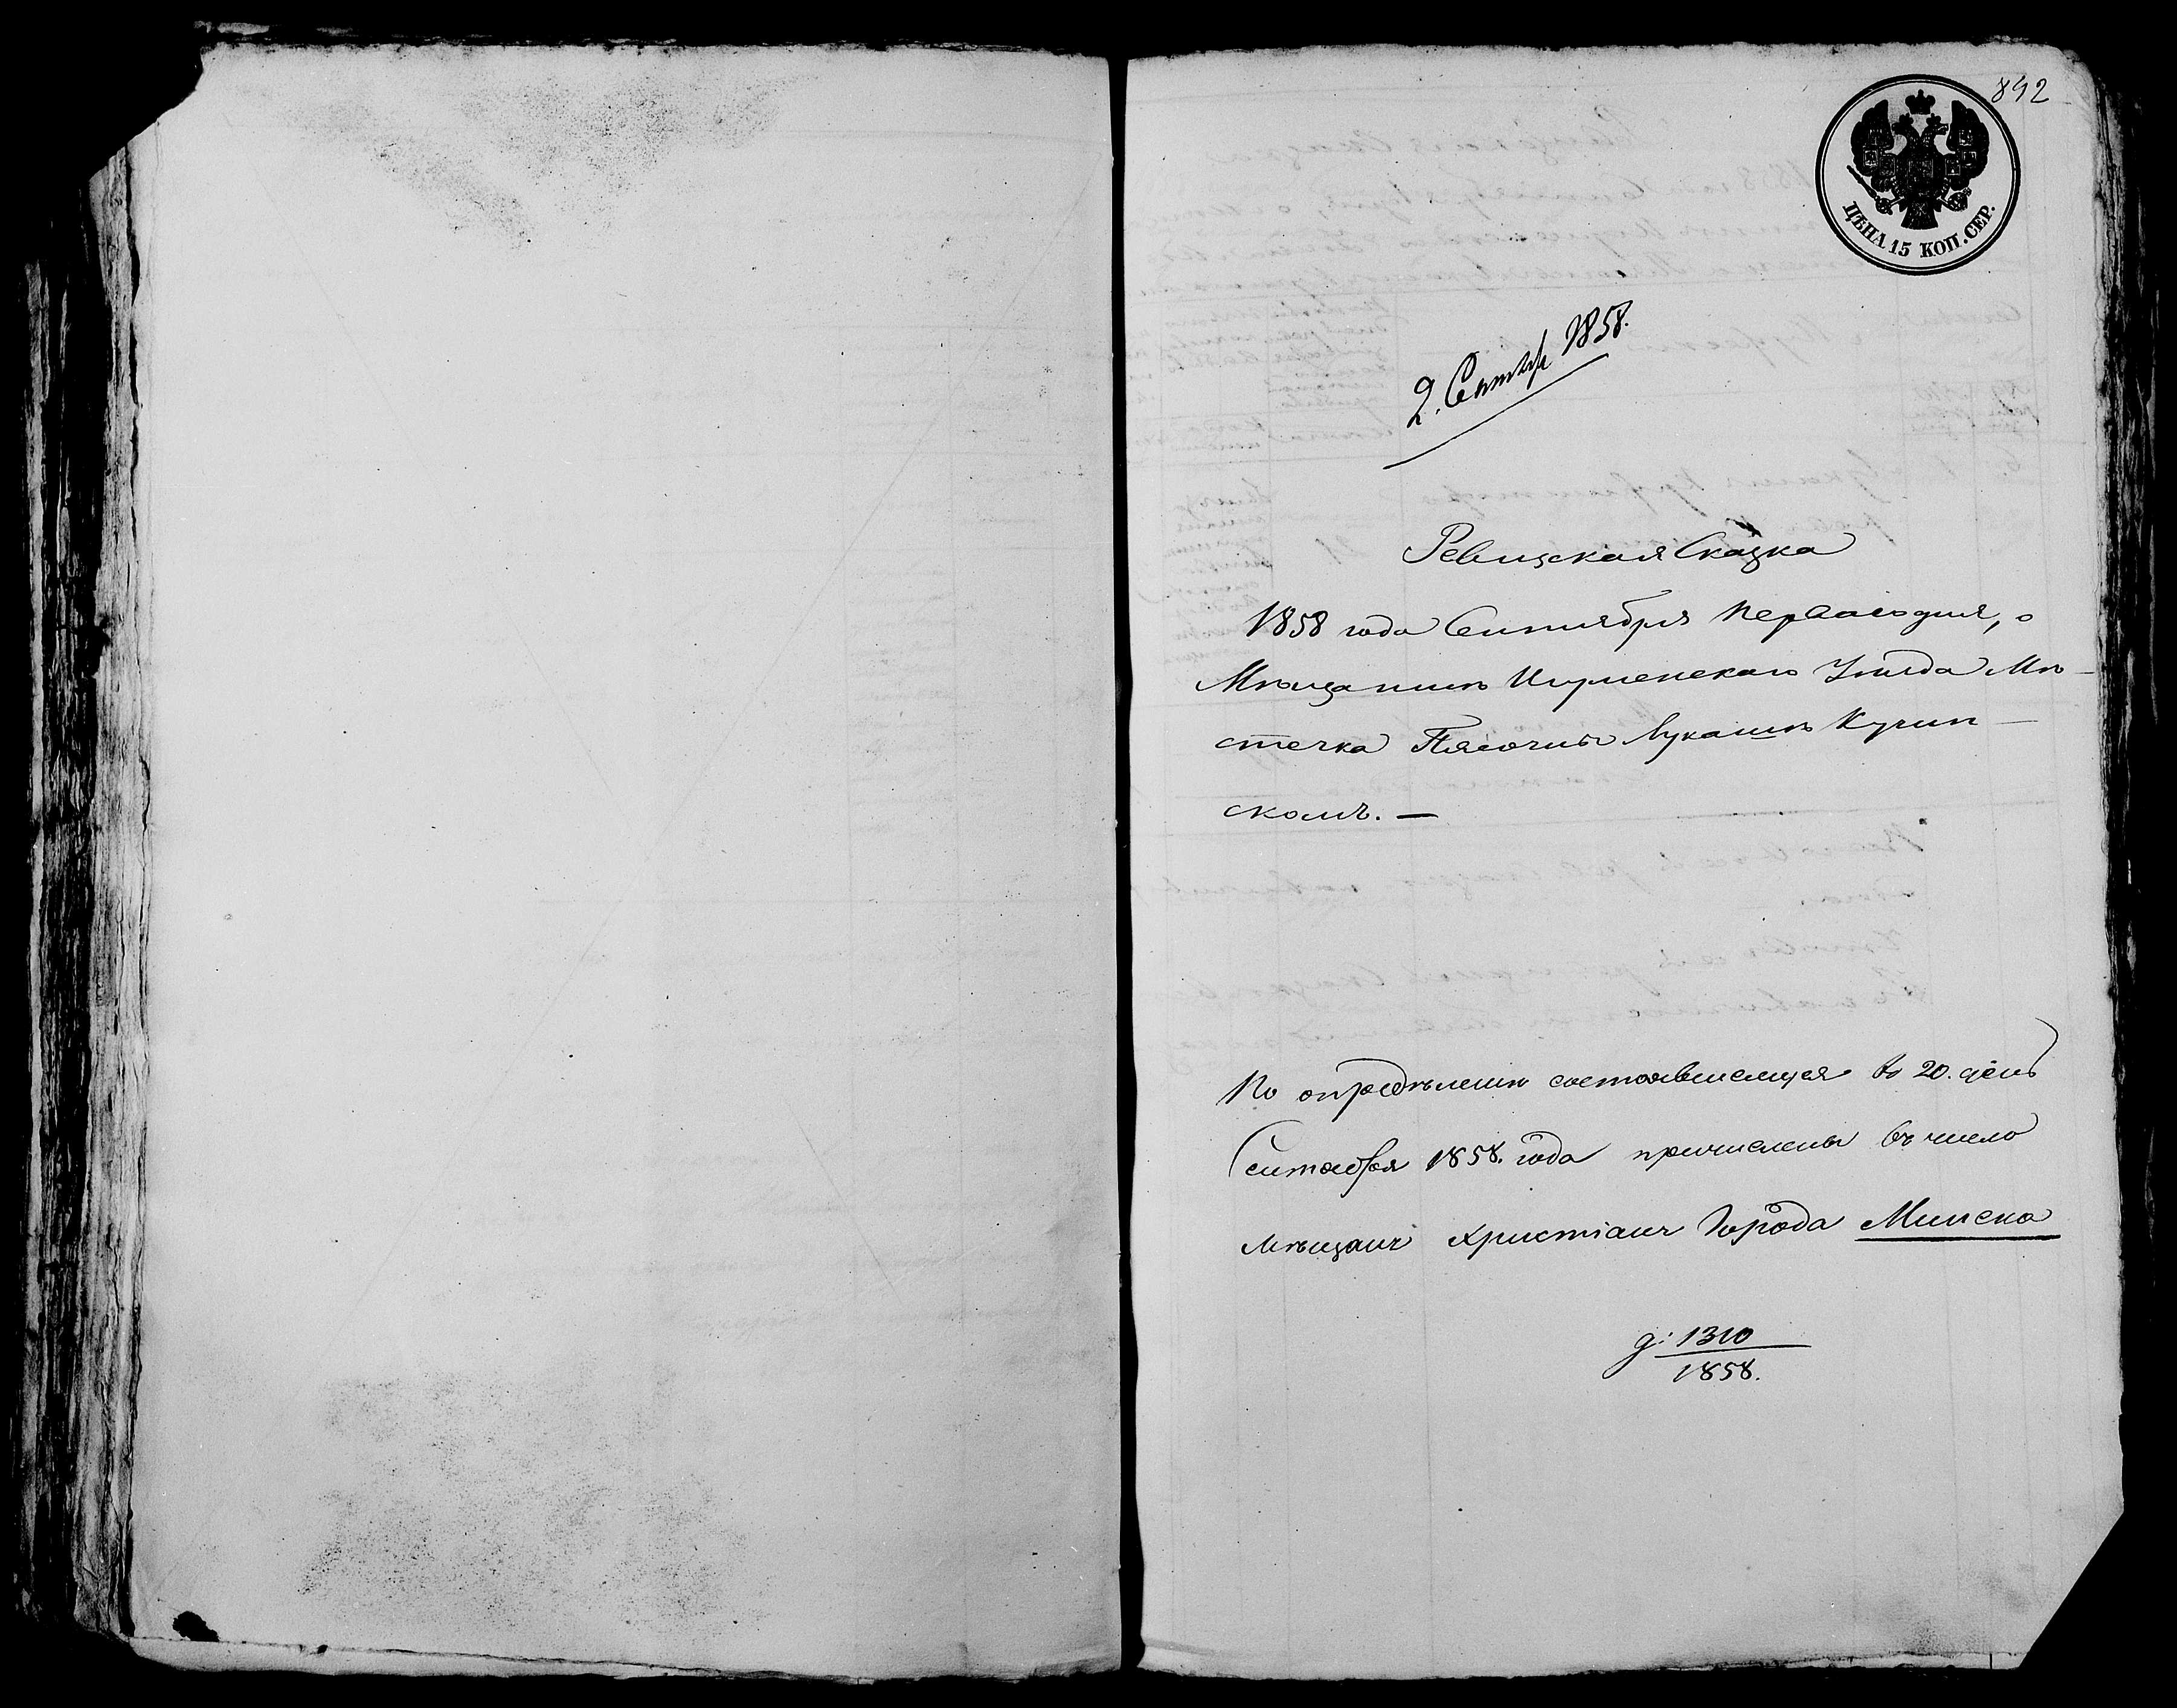 892
ЦѢНА 15 КОП. СЕР.
2. Сентяб 1858.
Ревизская Сказка
1858 года Сентября перваго дня, о
Мѣщанинѣ Игуменскаго Уѣзда Мѣ-
стечка Пясочны Лукашѣ Кучин-
скомъ. —
По опредѣленію состоявшемуся в 20. день
Сентября 1858. года причислены въ число
мѣщанъ христіанъ города Минска
д: 1310
1858.